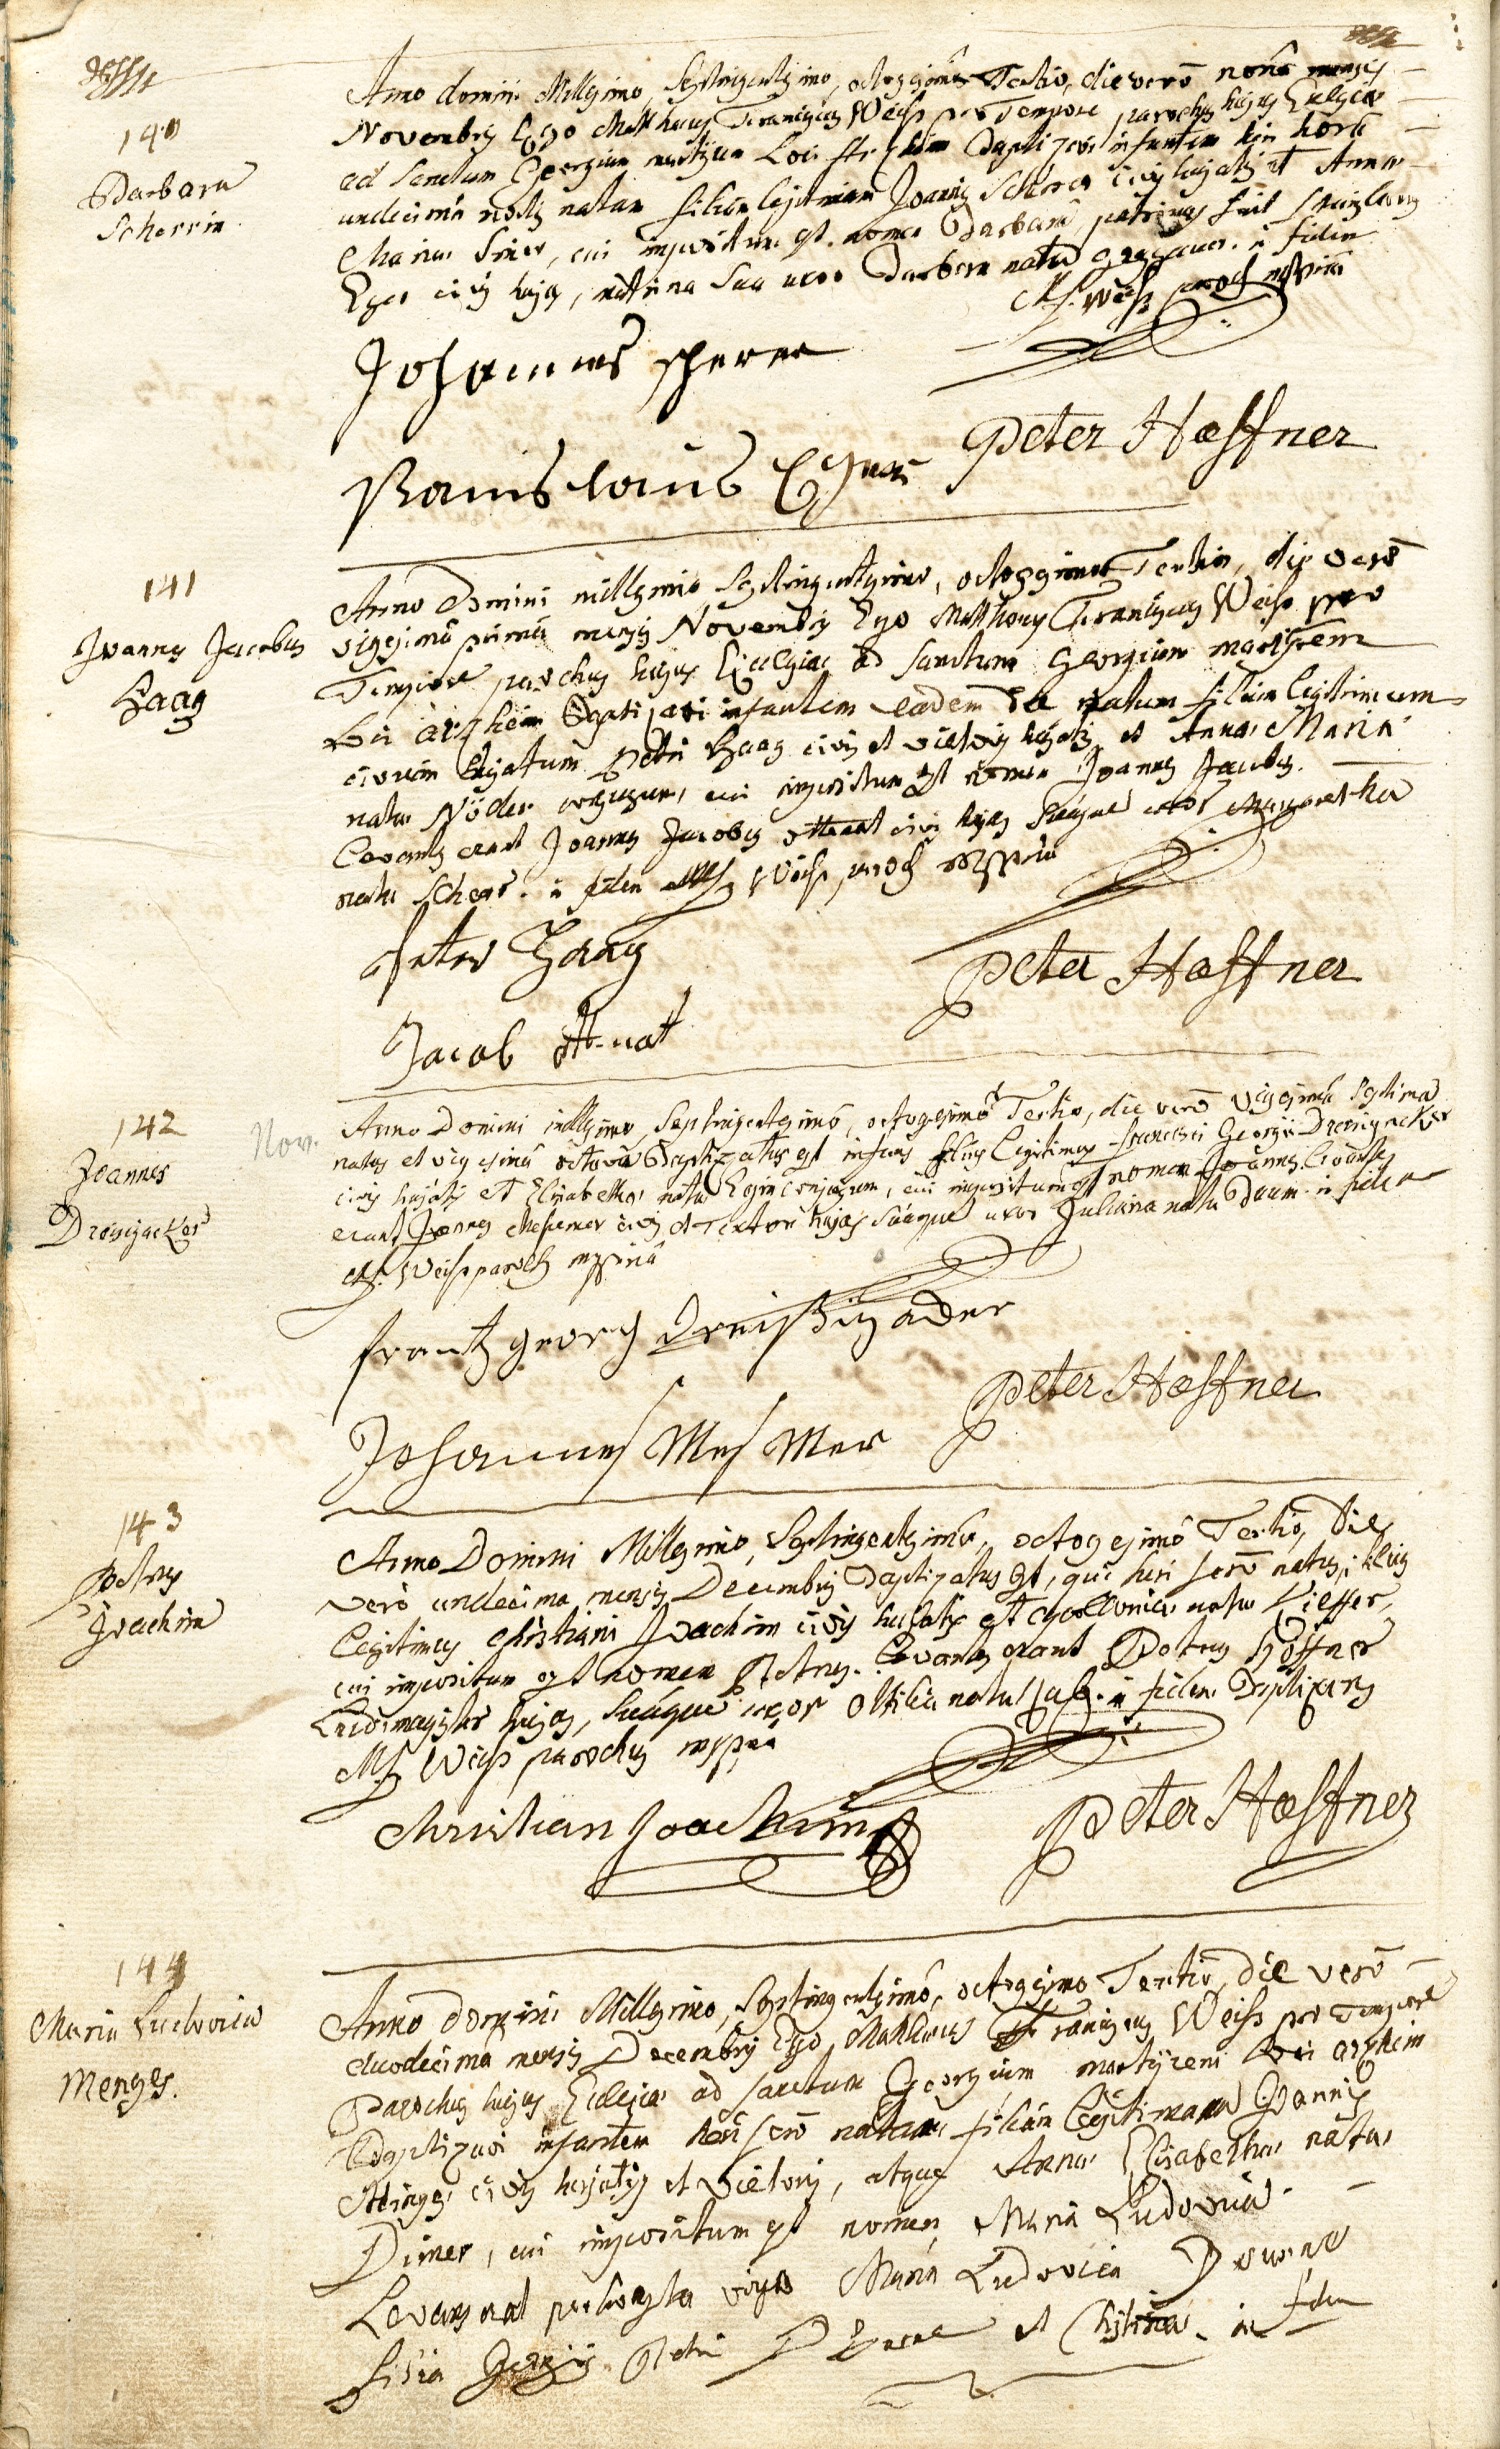 140
Barbara
Scherrin
Anno domini Millesimo, Septingentesimo, octogesimo Tertio, die verò nonâ mensis
Novembris Ego Matthaeus Franciscus Weiss pro Tempore parochus hujus Ecclesiae
ad Sanctum Georgium martyrem Loci baptizavi infantem heri horâ
undecimâ noctis natam filiam legitimam Joannis Scherer civis hujatis et Annae
Mariae, cui impositum est nomen Barbara, patrinus fuit
civis hujas, matrina sua uxor Barbara nata in fidem
Mf. Weiss paroch mppriâ
Johannes scherer
Peter Hæffner
141
Joannes Jacobus
Haag
Anno Domini millesimo Septingentesimo, octogesimo Tertio, die verò
vigesimâ primâ mensis Novembris Ego Matthaeus Franciscus Weiss pro
Tempore parochus hujus Ecclesiae ad Sanctum Georgium martyrem
Loci arzheim Baptizavi infantem eadem die natum filium legitimum
civium hujatum Petri Haag civis et vietoris hujatis et Annae Mariae
natae Nöder conjugum, cui impositum est nomen Joannes Jacobus.
Levantes erant Joannes Jacobus ottenat civis hujas suaque uxor Margaretha
nata Scherer. in fidem Mf Weiss paroch mppriâ
Peter Haag
Peter Hæffner
Jacob ottenat
142
Joannes
Dreisigacker
Nov.
Anno Domini millesimo, Septingentesimo, octogesimô Tertio, die verò vigesimâ septima
natus et vigesimâ octavâ Baptizatus est infans filius legitimus Francisci Georgii Dreisigacker
civis hujatis et Elisabethae natae conjugum, cui impositum est nomen Joannes. Levantes
erant Joannes Mesemer civis et Textor hujas suaque uxor Juliana nata Daum. in fidem
Mf. Weiss paroch mppriâ
frantz georg Dreissigacker
Peter Hæffner
Johannes Mesmer
143
Petrus
Joachim
Anno Domini Millesimo, Septingentesimô, octogesimô Tertiô, Die
verò undecima mensis Decembris Baptizatus est, qui heri serò natus, filius
legitimus Christiani Joachim civis hujatis et Apolloniae natae Kieffer,
cui impositum est nomen Petrus. Levantes erant Petrus Höffner
Ludimagister hujas, suaque uxor Ottilia nata in fidem Baptizans
Mf Weiss parochus mppriâ
Christian Joachim
Peter Hæffner
144
Maria Ludovica
Menges.
Anno domini Millesimo, Septingentesimô, octogesimo Tertiô, die verò
duodecima mensis Decembris Ego Matthaeus Franciscus Weiss pro Tempore
Parochus hujus Ecclesiae ad sanctum Georgium martyrem Loci arzheim
Baptizavi infantem heri serò natam filiam legitimam Joannis
Menges civis hujatis et vietoris, atque Annae Elisabethae natae
Dimer, cui impositum est nomen Maria Ludovica.
Levans erat perhonesta virgo Maria Ludovica
filia Georgii Petri et Christinae. in fidem